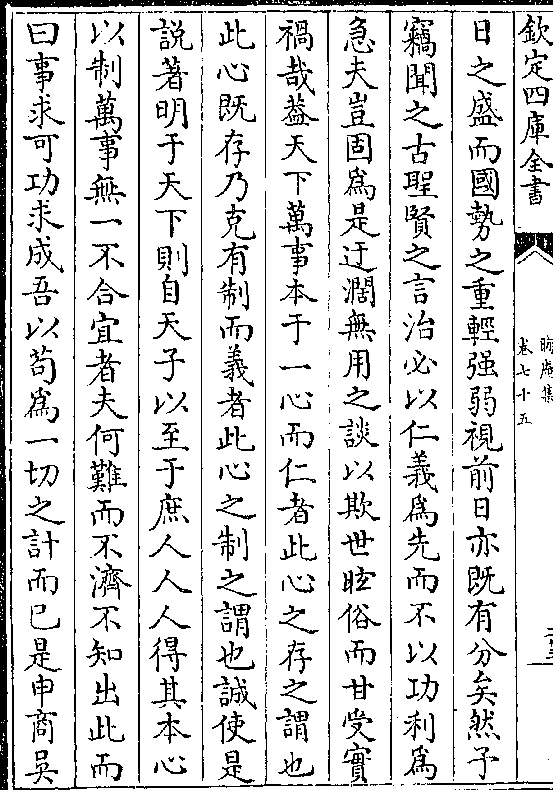 欽定四庫全書
晦庵集
卷七十五
日之盛而國勢之重輕强弱視前日亦既有分矣然予
竊聞之古聖賢之言治必以仁義爲先而不以功利爲
急夫豈固爲是迂濶無用之談以欺世眩俗而甘受實
禍哉葢天下萬事本于一心而仁者此心之存之謂也
此心既存乃克有制而義者此心之制之謂也誠使是
說著明于天下則自天子以至于庶人人人得其本心
以制萬事無一不合宜者夫何難而不濟不知出此而
曰事求可功求成吾以苟爲一切之計而已是申商吳